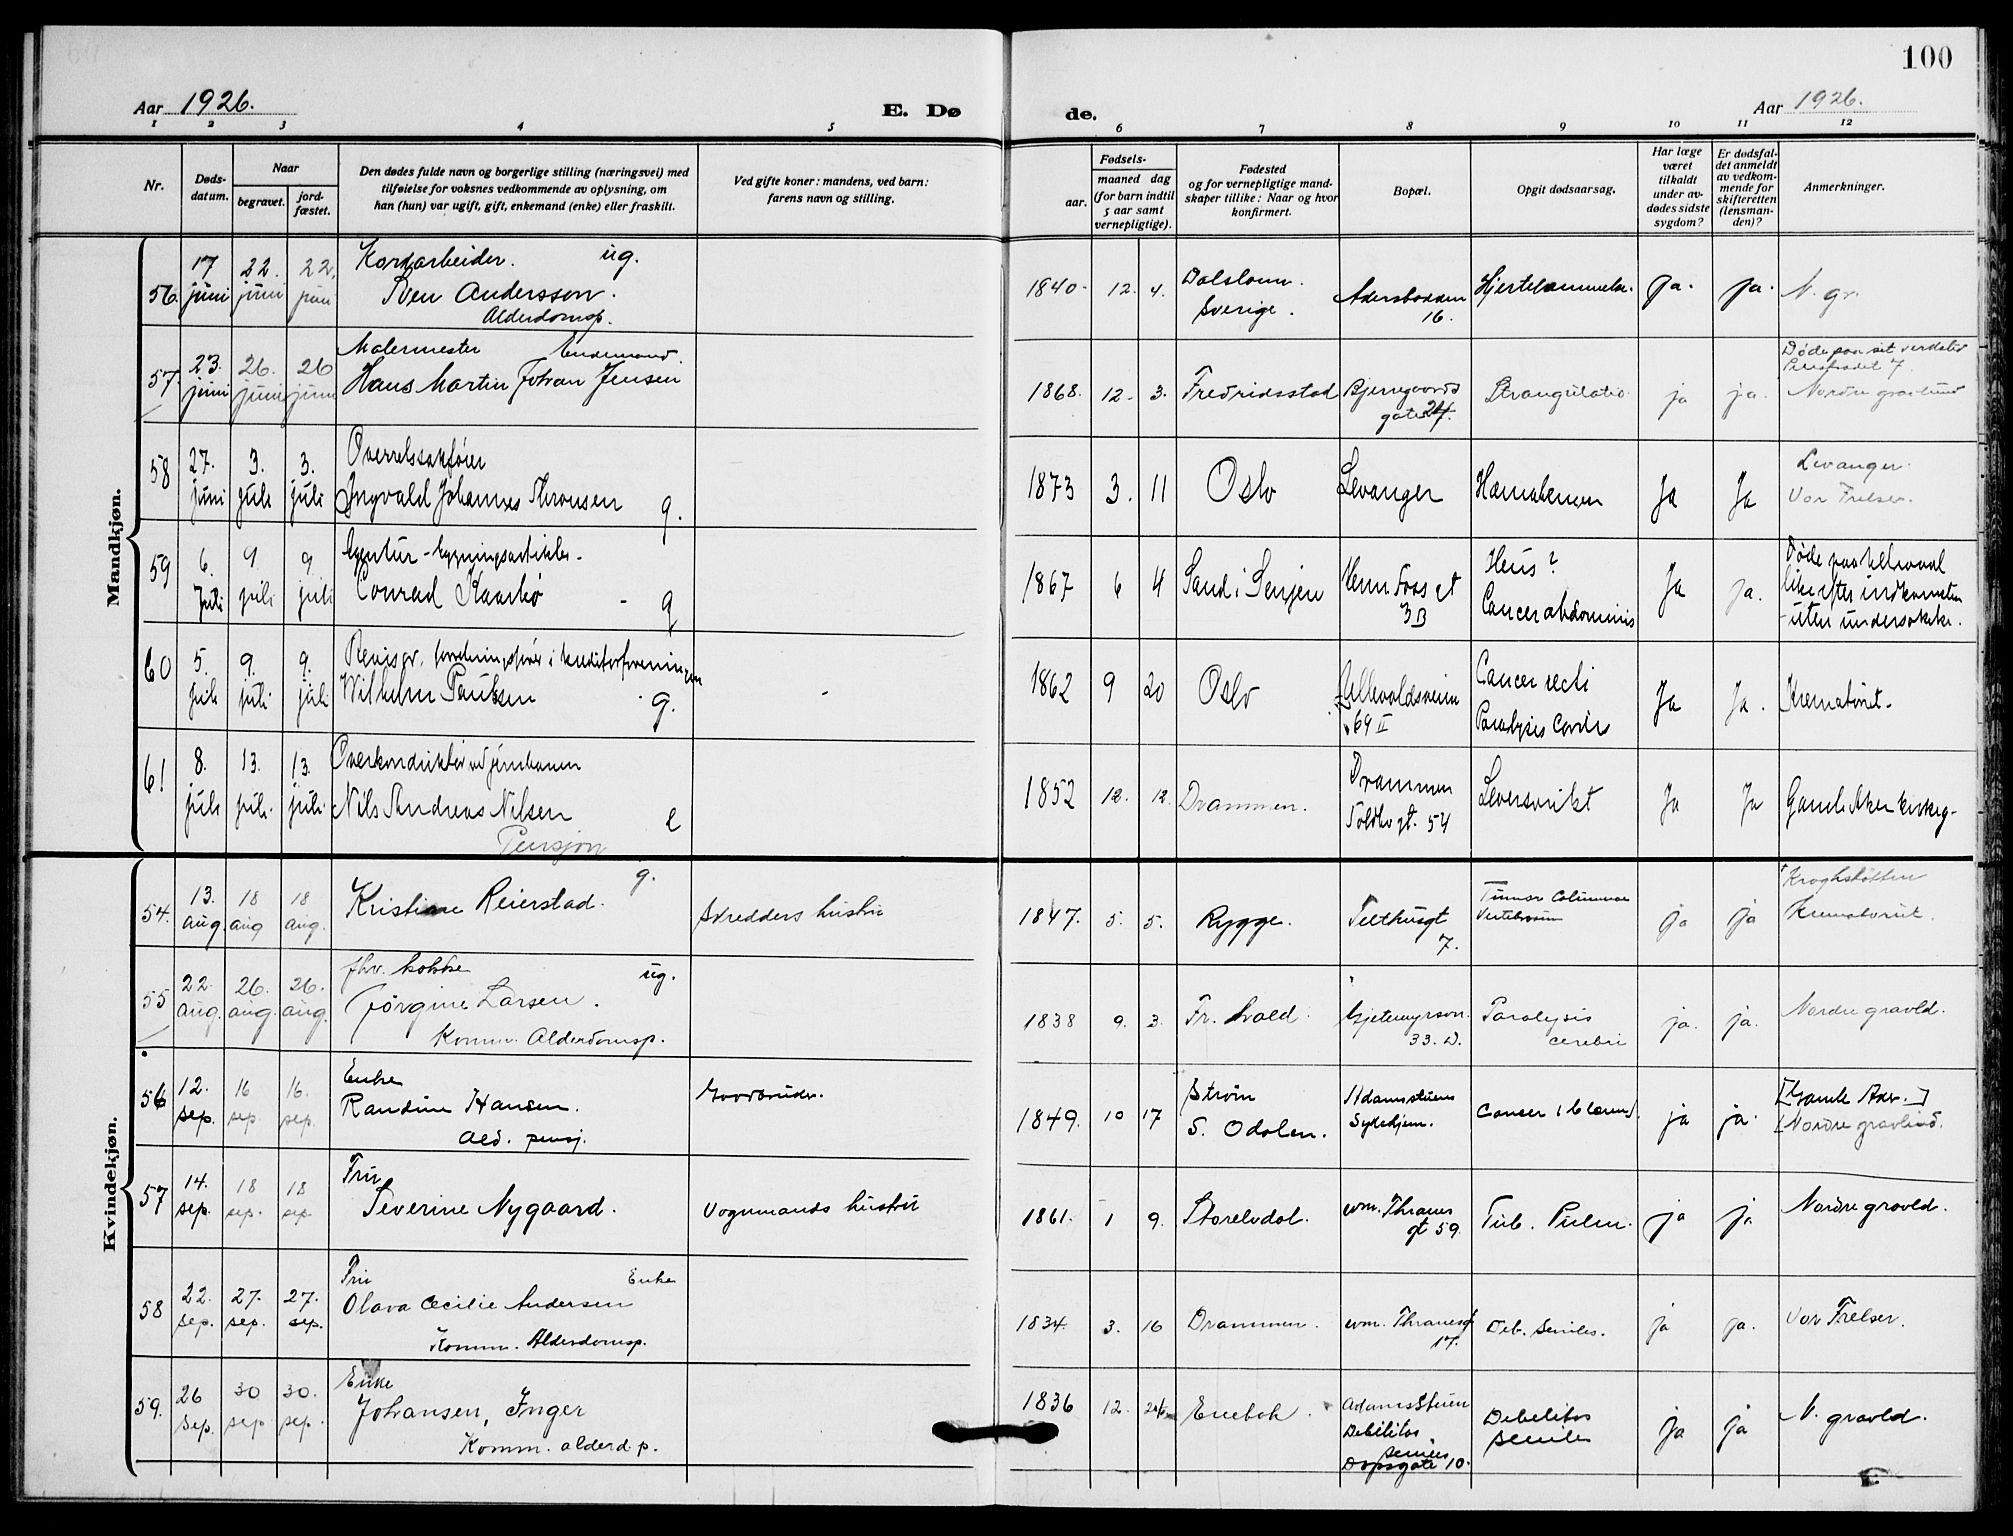 100
Aar 1926.
E. Dø
de.
Aar 1926.
1 2 3 4 5 6 7 8 9 10 11 12
Nr.
Døds-
datum.
Naar
begravet.
jord-
fæstet.
Den dødes fulde navn og borgerlige stilling (næringsvei) med
tilføielse for voksnes vedkommende av oplysning, om
han (hun) var ugift, gift, enkemand (enke) eller fraskilt.
Ved gifte koner: mandens, ved barn:
farens navn og stilling.
Fødsels-
aar.
maaned dag
(for barn indtil
5 aar samt
vernepligtige).
Fødested
og for vernepligtige mand-
skaper tillike: Naar og hvor
konfirmert.
Bopæl.
Opgit dødsaarsag.
Har læge
været
tilkaldt
under av-
dødes sidste
sygdom?
Er dødsfal-
det anmeldt
av vedkom-
mende for
skifteretten
(lensman-
den)?
Anmerkninger.
Mandkjøn.
56. 17 juni 22. juni 22. juni
ug.
Sven Andersson.
Alderdomsp.
1840. 12. 4.
Sverige.
16.
ja. ja.
N. gr.
57. 23. juni 26. juni 26 juni
Malermester Enkemand.
Hans Martin Johan Jensen
1868. 12. 3.
Fredriksstad
Bjerregaards
gate 24.
Strangulatio
ja ja.
Nordre gravlund
58 27. juni 3. juli 3. juli
Overretssakfører
Ingvald Johannes Thronsen g.
1873 3. 11
Oslo
Levanger
Ja Ja
Levanger.
Vor Frelser.
59 6. Juli 9 juli 9 juli
Agentur - bygningsartikler -
Conrad Kaarbø - g
1867 6 4
Sand i Senjen
Herm. Foss gt
3B
Ileus?
Cancer abdominis
Ja ja.
Døde paa Ullevaal
like efter indkomsten
- uten undersøkelse.
60 5. juli 9. juli 9. juli
Revisor, forretningsfører i kreditorforeningen
Wilhelm Paulsen g.
1862 9 20
Oslo
Ullevoldsveien
69 II
Cancer recti
Paralysis Cordis
Ja Ja.
Krematoriet.
61 8. juli 13. juli. 13. juli
Overkonduktør ved jernbanen
Nils Andreas Nilsen e
Pensjon
1852 12. 12.
Drammen.
Drammen
Toldbgt. 54
Leversvikt
Ja Ja
Gamle Aker kirkeg.
Kvindekjøn.
54. 13. aug. 18 aug 18 aug.
g.
Kristiane Reierstad.
Skredders hustru
1847. 5. 5.
Rygge.
Telthusgt
7.
Tumor Columnae
Vertebrarum
ja ja
Kroghstøtten
Krematoriet.
55 22. aug. 26. aug. 26. aug.
fhv. kokke ug.
Jørgine Larsen.
Komm. Alderdomsp.
1838 9. 3.
Fr. hald.
Gjetemyrsv.
33. D.
Paralysis
cerebri
ja. ja.
Nordre gravld.
56 12. sep. 16 sep. 16. sep.
Enke
Randine Hansen.
Ald. pensj.
Gaardbruder.
1849. 10 17
Strøm
S. Odalen.
Adamstuens
Sykehjem.
ja ja.
[Gamle Aker.]
[Nordre gravlund.
57 14. sep. 18 sep. 18 sep
Fru
Severine Nygaard.
Vognmands hustru
1861. 1 9.
Storelvdal.
wm. Thranes
gt 59.
Tub. Pulm.
ja ja
Nordre gravld.
58 22. sep. 27. sep. 27. sep.
Fru Enke
Olava Cecilie Andersen
Komm. Alderdomsp.
1834. 3. 16
Drammen.
wm. Thranesgt
17.
Deb. Seniles.
ja ja.
Vor Frelser.
59. 26 sep. 30 sep 30. sep.
Enke
Johansen, Inger
Komm. alderd. p.
1836 12.
Enebak.
Adamstuen
Debilitas
seniles
Dopsgate 10.
Debelitas
senile
ja ja
N. gravld.